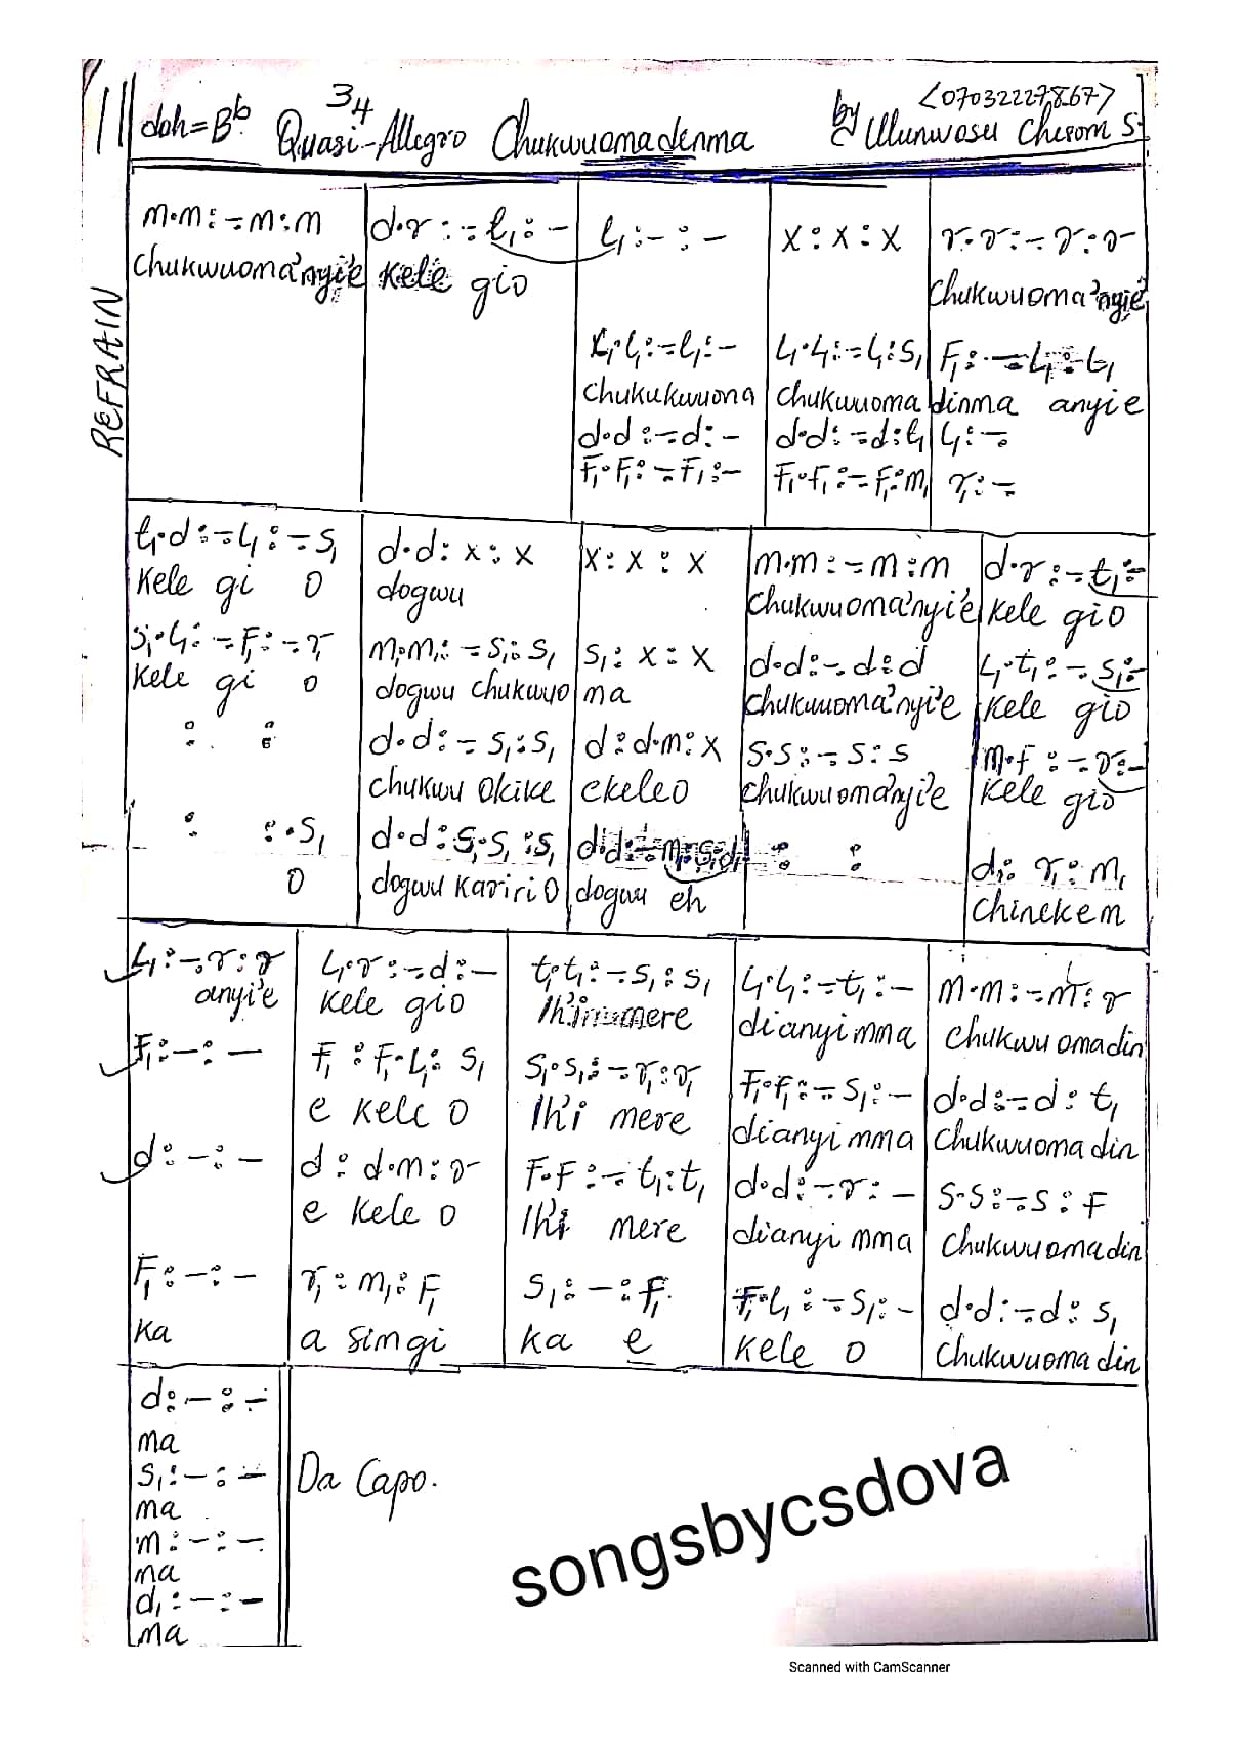 <07032227867>
doh=Bb 3/4 Quasi-Allegro Chukwuomadenma by Ulunwosu Chisom S.
REFRAIN
m.m:-m:m d.r:-l₁:- l₁:-:- x:x:x r.r:-r:r
chukwuoma'nyi'e kele gio chukwuoma'nyie
x.l₁:-l₁:- l₁.l₁:-l₁:s₁ f₁:-l₁:l₁
chukukwuona chukwuoma dinma anyie
d.d:-d:- d.d:-d:l₁ l₁:-
f₁.f₁:-f₁:- f₁.f₁:-f₁:m₁ r₁:-
t₁.d:-l₁:-s₁ d.d:x:x x:x:x m.m:-m:m d.r:-t₁:-
kele gi o dogwu chukwuoma'nyi'e kele gio
s₁.l₁:-f₁:-r₁ m₁.m₁:-s₁:s₁ s₁:x:x d.d:-d:d l₁.t₁:-s₁:-
kele gi o dogwu chukwuo ma chukwuoma'nyi'e kele gio
: : d.d:-s₁:s₁ d:d.m:x s.s:-s:s m.f:-r:-
chukwu okike ekeleo chukwuoma'nyi'e kele gio
: :.s₁ d.d:s₁.s₁:s₁ : : d₁:r₁:m₁
o dogwu kariri o dogwu eh chinekem
l₁:-r:r l₁.r:-d:- t₁.t₁:-s₁:s₁ l₁.l₁:-t₁:- m.m:-m:r
anyi'e kele gio mere dianyi mma chukwu omadin
f₁:-:- f₁:f₁.l₁:s₁ s₁.s₁:-r₁:r₁ f₁.f₁:-s₁:- d.d:-d:t₁
e kele o Ihi mere dianyi mma chukwuoma din
d:-:- d:d.m:r f.f:-t₁:t₁ d.d:-r:- s.s:-s:f
e kele o Ihi mere dianyi mma chukwuomadin
f₁:-:- r₁:m₁:f₁ s₁:-:f₁ f₁.l₁:-s₁:- d.d:-d:s₁
ka a simgi ka e kele o chukwuoma din
d:-:-
ma
s₁:-:-
ma
m:-:-
ma
d₁:-:-
ma
Da Capo.
songsbycsdova
Scanned with CamScanner